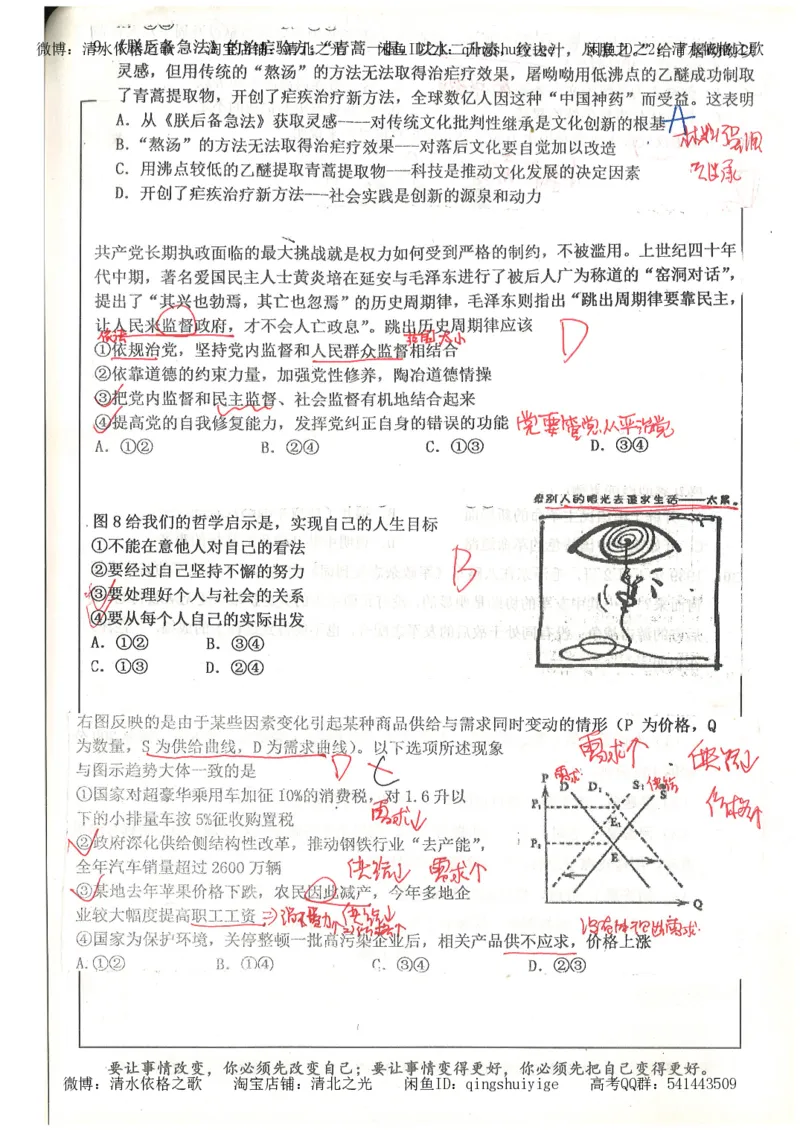 9.《朕后备急法》的治疟验方:“青蒿一握,以水二升渍,绞
微博:清水依格之歌 淘宝店铺:清北之光 闲鱼ID
灵感,但用传统的“熬汤”的方法无法取得治疟疗效果,屠呦呦用低沸点的乙醚成功制取
了青蒿提取物,开创了疟疾治疗新方法,全球数亿人因这种“中国神药”而受益。这表明
A.从《朕后备急法》获取灵感——对传统文化批判性继承是文化创新的根基
A
B.“熬汤”的方法无法取得治疟疗效果——对落后文化要自觉加以改造
材料强调
C.用沸点较低的乙醚提取青蒿提取物——科技是推动文化发展的决定因素
D.开创了疟疾治疗新方法——社会实践是创新的源泉和动力
共产党长期执政面临的最大挑战就是权力如何受到严格的制约,不被滥用。上世纪四十年
代中期,著名爱国民主人士黄炎培在延安与毛泽东进行了被后人广为称道的“窑洞对话”,
提出了“其兴也勃焉,其亡也忽焉”的历史周期律,毛泽东则指出“跳出周期律要靠民主,
让人民来监督政府,才不会人亡政息”。跳出历史周期律应该
D
依法
①依规治党,坚持党内监督和人民群众监督相结合
②依靠道德的约束力量,加强党性修养,陶冶道德情操
③把党内监督和民主监督、社会监督有机地结合起来
④提高党的自我修复能力,发挥党纠正自身的错误的功能
党要管党从严治党
A.①② B.②④ C.①③ D.③④
靠别人的眼光去谋求生活——太累。
图8给我们的哲学启示是,实现自己的人生目标
①不能在意他人对自己的看法
②要经过自己坚持不懈的努力
B
③要处理好个人与社会的关系
④要从每个人自己的实际出发
A.①② B.③④
C.①③ D.②④
右图反映的是由于某些因素变化引起某种商品供给与需求同时变动的情形(P 为价格,Q
为数量,S为供给曲线,D为需求曲线)。以下选项所述现象
需求个 供给↓
与图示趋势大体一致的是
D C
价格个
①国家对超豪华乘用车加征10%的消费税,对1.6升以
下的小排量车按5%征收购置税
需求↓
②政府深化供给侧结构性改革,推动钢铁行业“去产能”,
全年汽车销量超过2600万辆
供给↓ 需求个
③某地去年苹果价格下跌,农民因此减产,今年多地企
业较大幅度提高职工工资
供给↓
④国家为保护环境,关停整顿一批高污染企业后,相关产品供不应求,价格上涨
没有体现出需求
A.①② B.①④ C.③④ D.②③
需求
供给
P D D₁ S₁ S
P₁ E₁
P₂ E
Q
要让事情改变,你必须先改变自己;要让事情变得更好,你必须先把自己变得更好。
微博:清水依格之歌 淘宝店铺:清北之光 闲鱼ID:qingshuiyige 高考QQ群:541443509